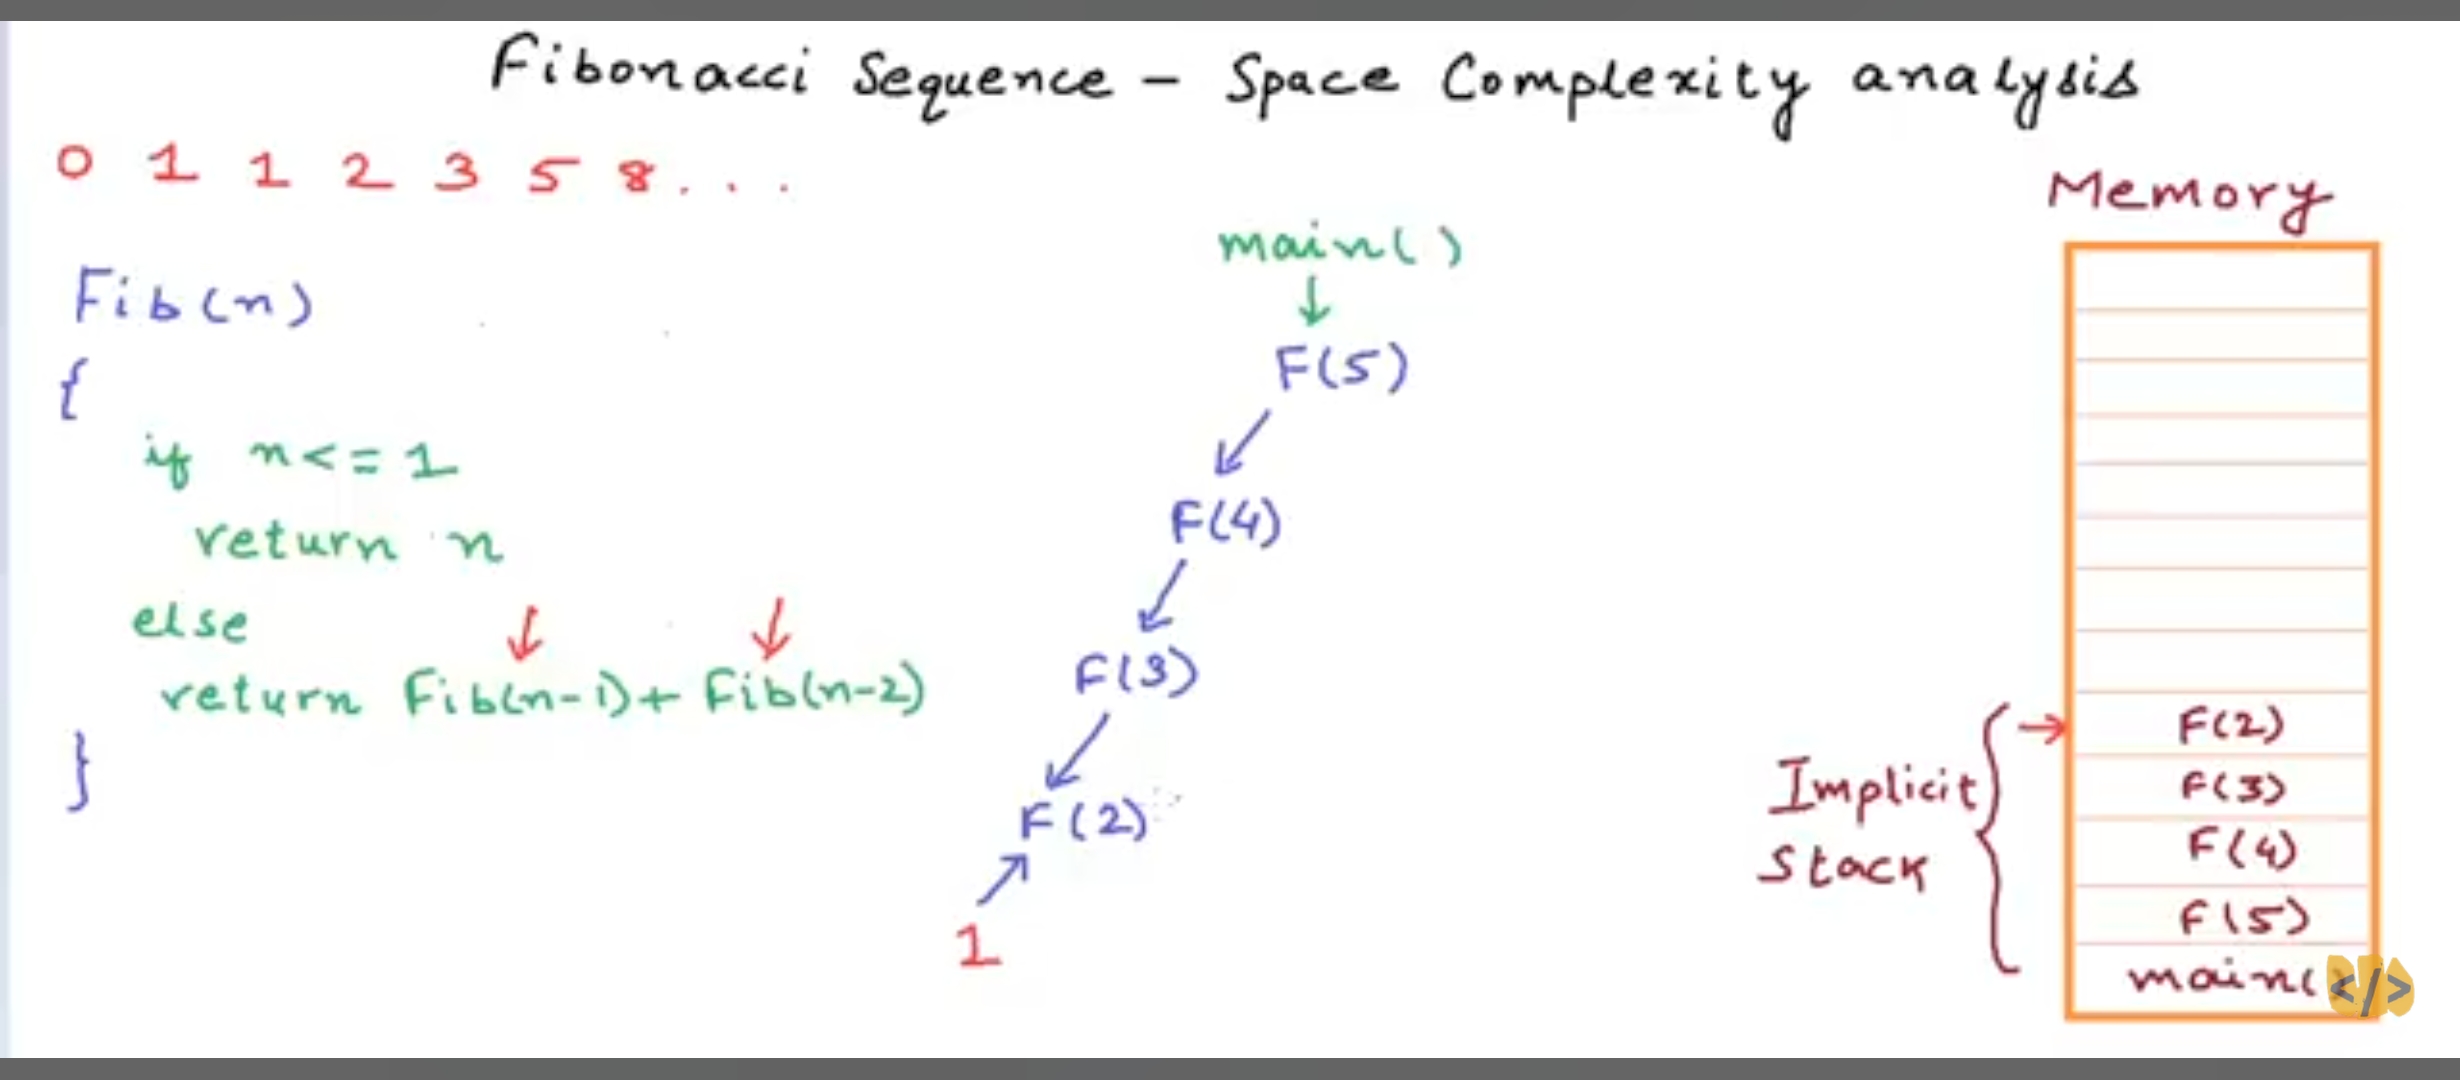 Fibonacci Sequence - Space Complexity analysis
0 1 1 2 3 5 8 . . .
Fib(n)
{
if n<=1
return n
else
return Fib(n-1)+ Fib(n-2)
}
main()
F(5)
F(4)
F(3)
F(2)
1
Memory
Implicit
Stack
F(2)
F(3)
F(4)
F(5)
main()
</>